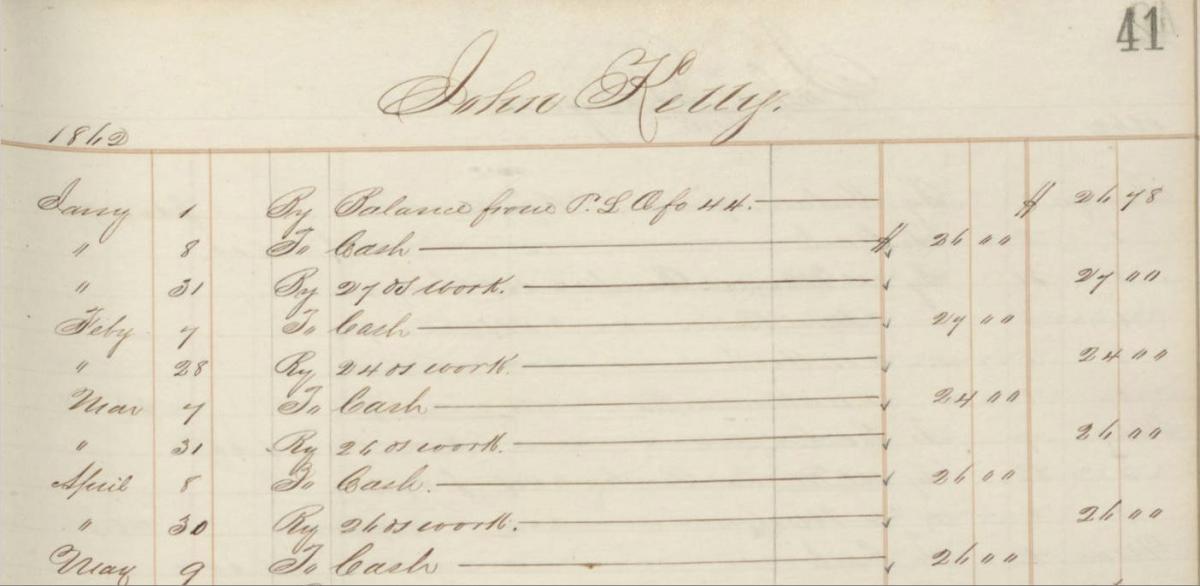 41
John Kelly.
1862
Jany 1 By Balance from P. L. B fo 44. $ 26 78
" 8 To Cash $ 26 " "
" 31 By 27 Ds work. 27 " "
Feby 7 To Cash 27 " "
" 28 By 24 Ds work. 24 " "
Mar 7 To Cash 24 " "
" 31 By 26 Ds work. 26 " "
April 8 To Cash. 26 " "
" 30 By 26 Ds work. 26 " "
May 9 To Cash 26 " "